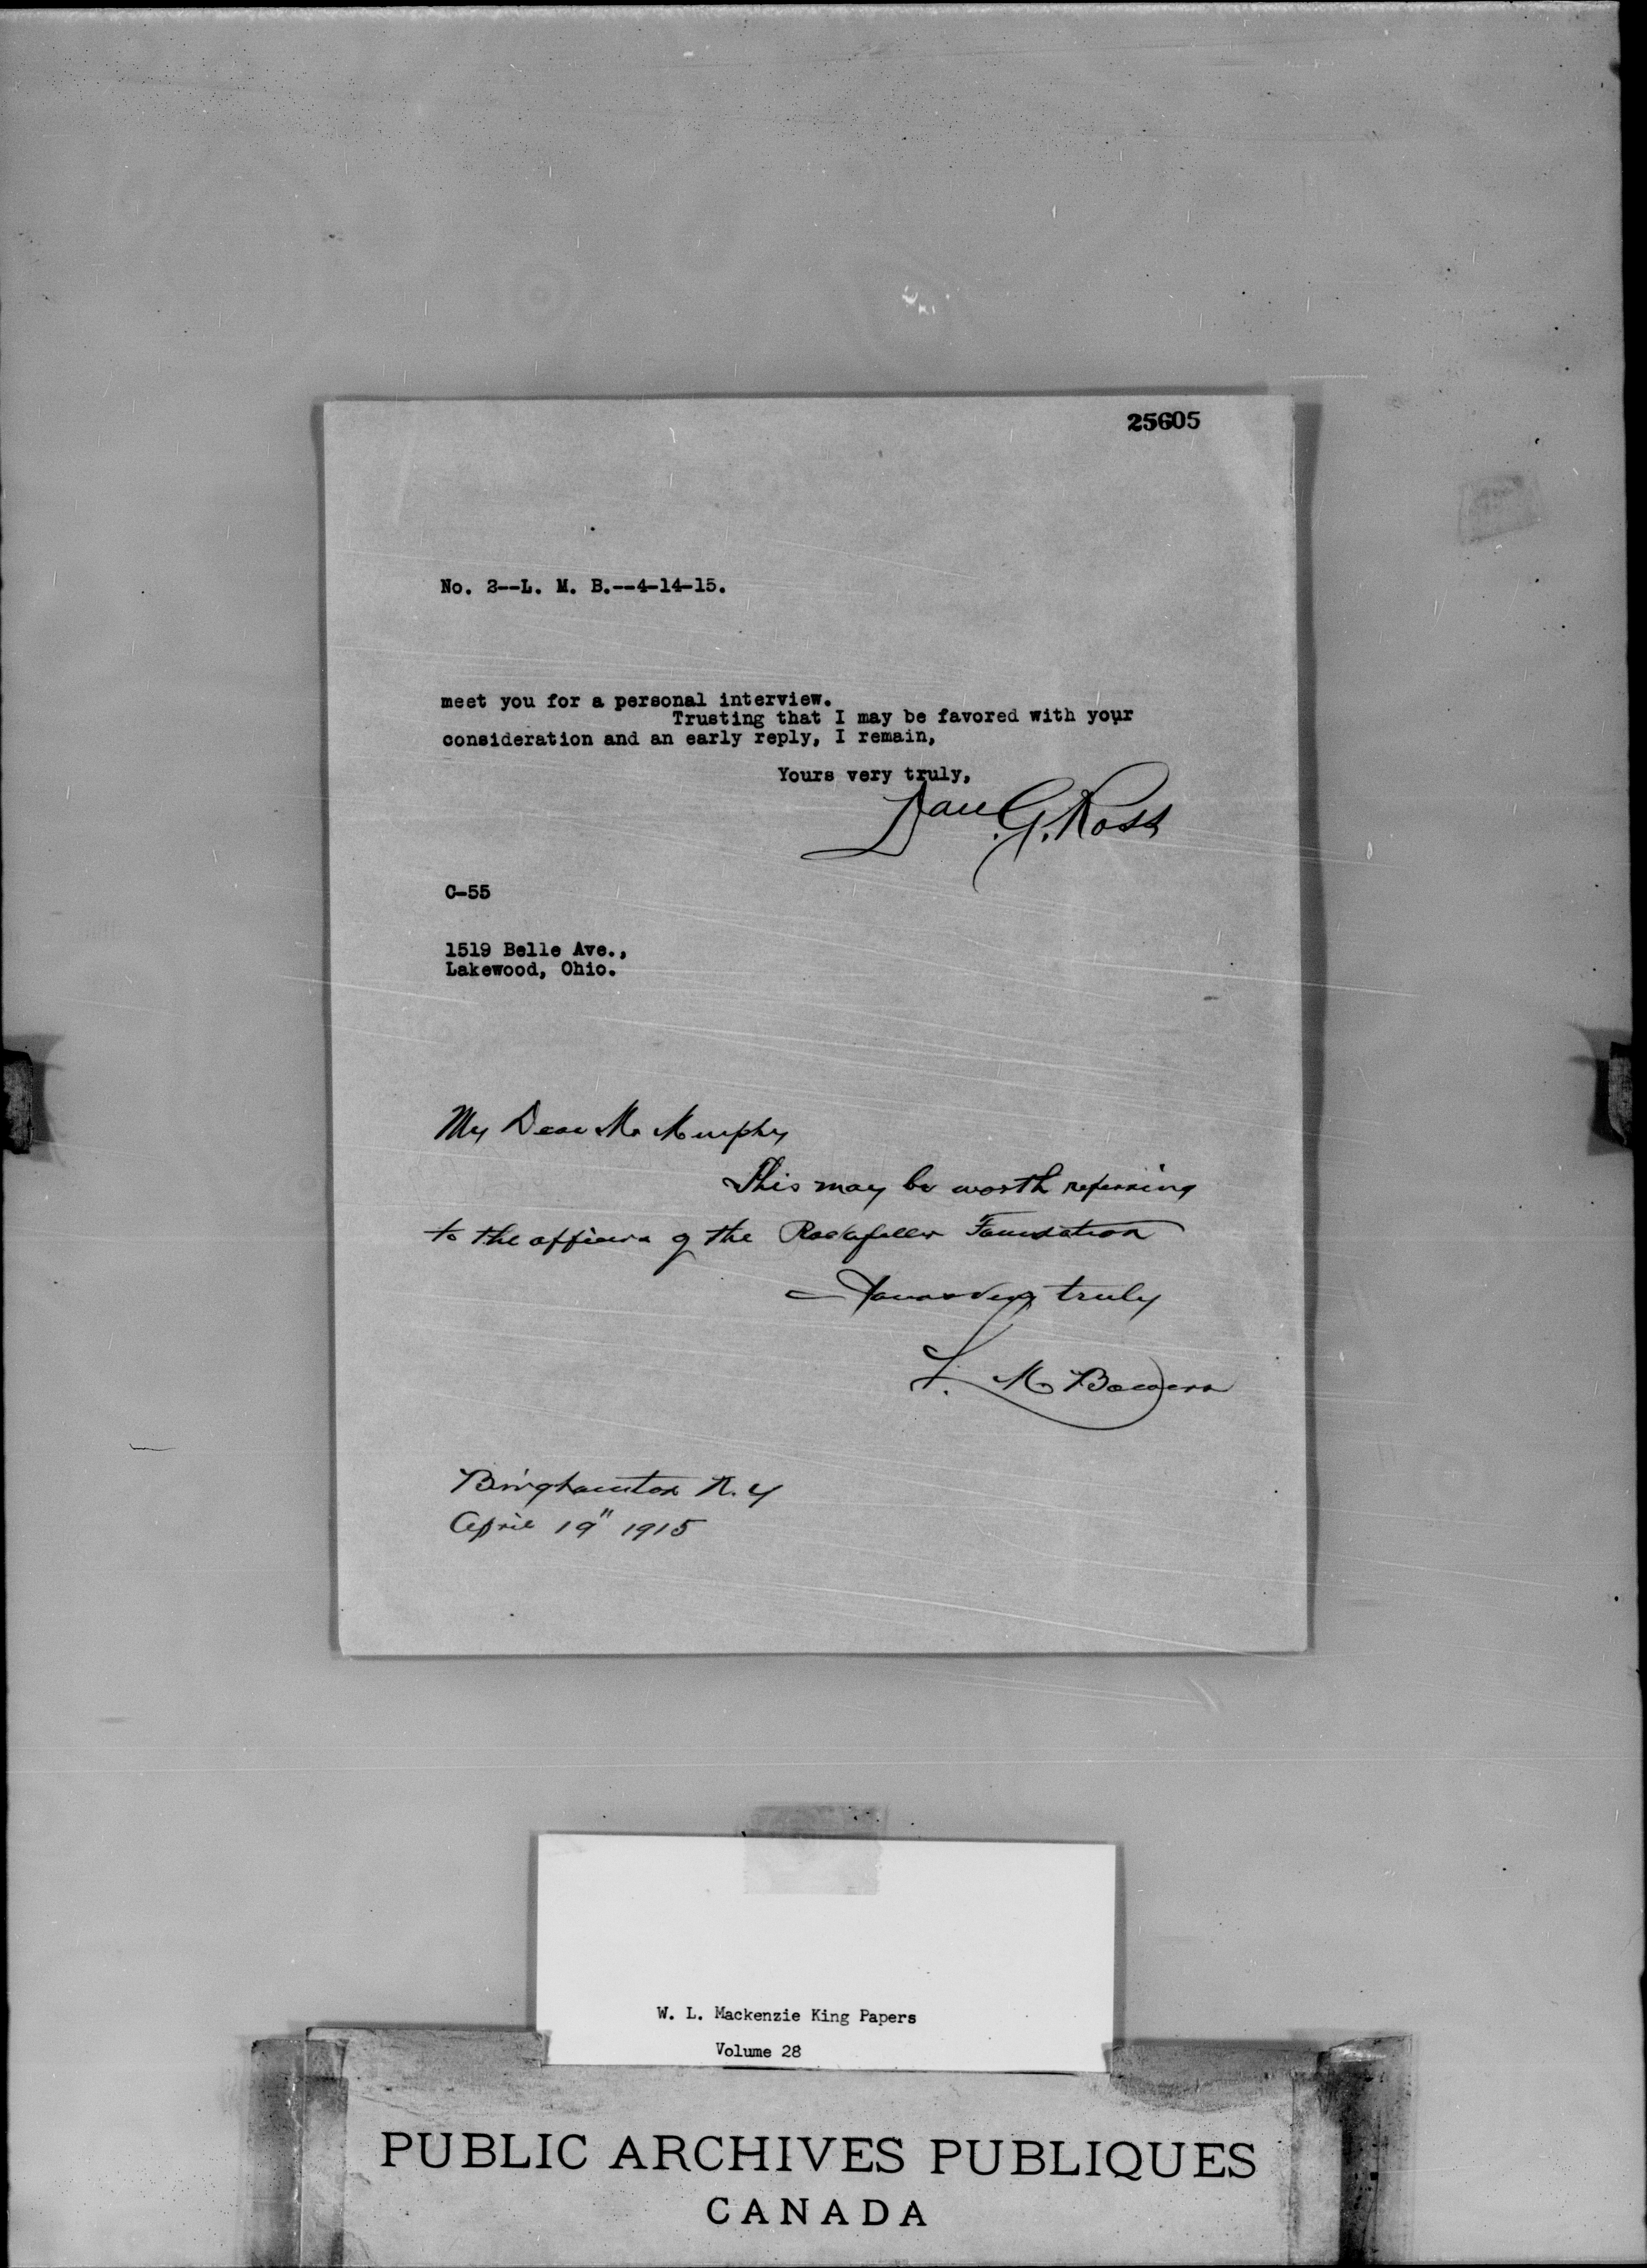 25605
No. 2--L. M. B.--4-14-15.
meet you for a personal interview.
Trusting that I may be favored with your
consideration and an early reply, I remain,
Yours very truly,
Dan. G. Ross
C-55
1519 Belle Ave.,
Lakewood, Ohio.
My Dear Mr Murphy
This may be worth referring
to the officers of the Rockefeller Foundation
Yours very truly
L. M Bowers
Binghamton N. Y
April 19" 1915
W. L. Mackenzie King Papers
Volume 28
PUBLIC ARCHIVES PUBLIQUES
CANADA